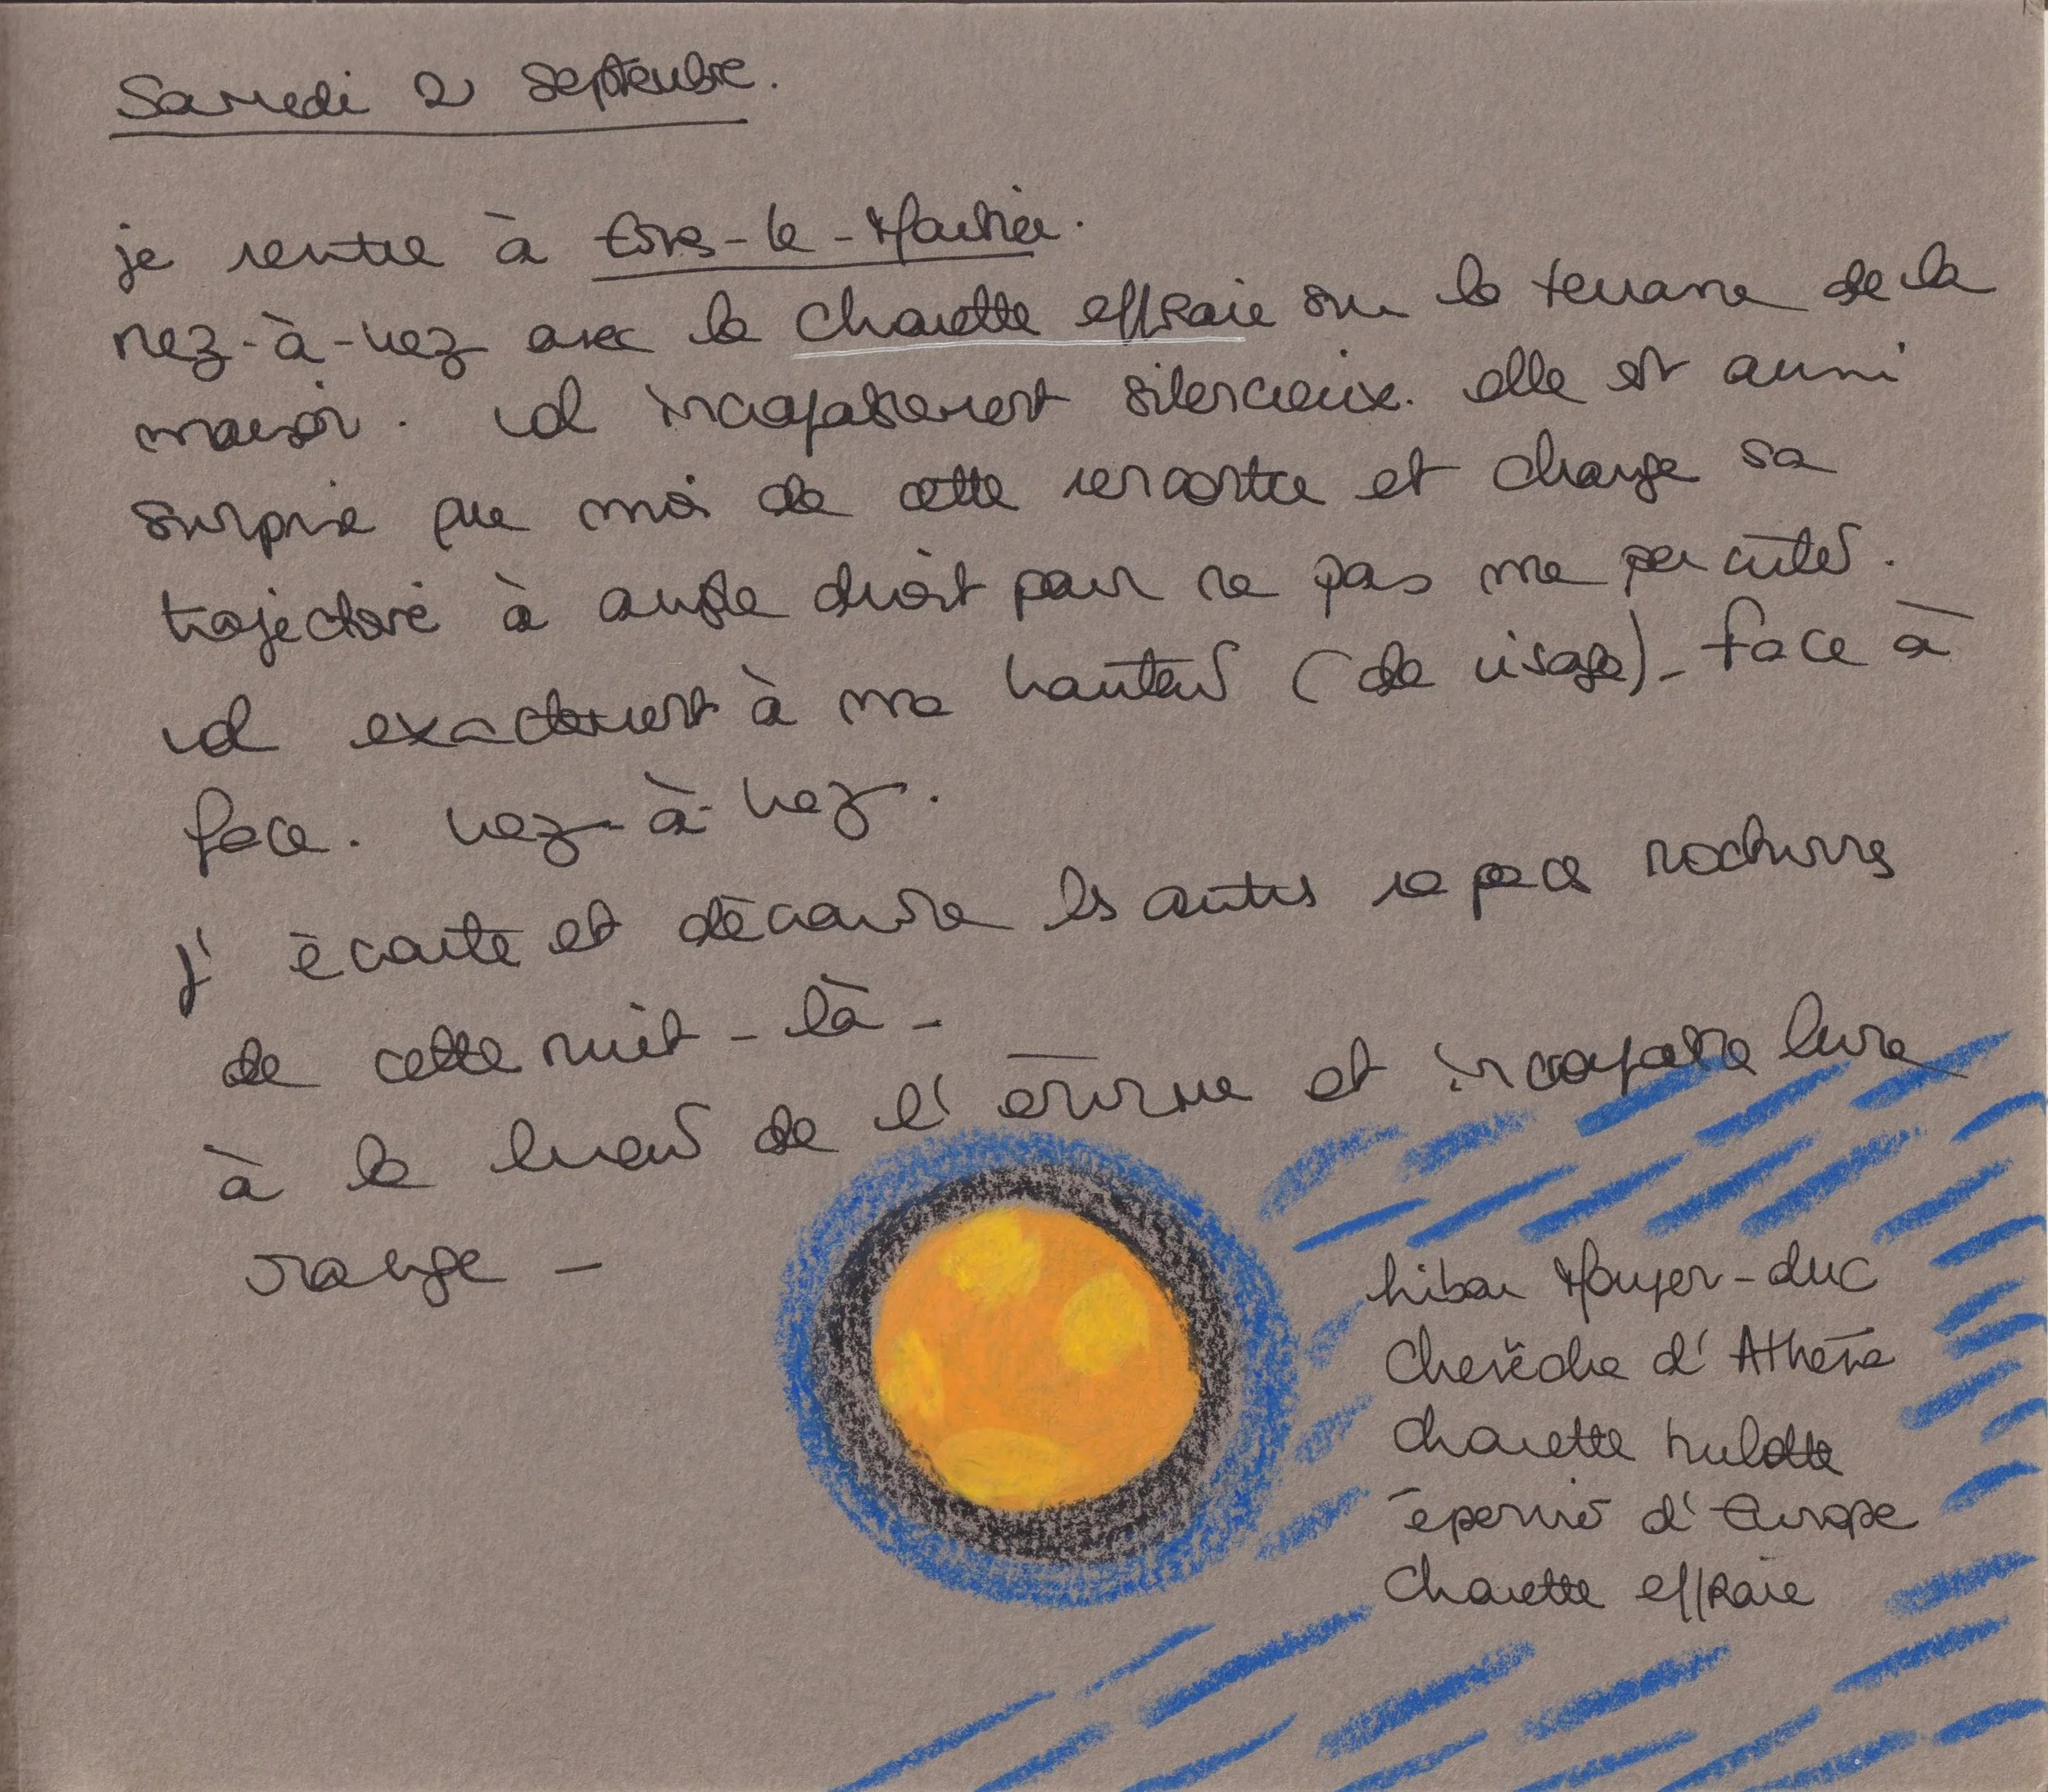 Samedi 2 septembre.
je rentre à
nez-à-nez avec la chouette effraie sur la terrasse de la
maison. vol incroyablement silencieux. elle est aussi
surprise que moi de cette rencontre et change sa
trajectoire à angle droit pour ne pas me percuter.
vol exactement à ma hauteur (de visage) - face à
face. nez-à-nez.
j'écoute et découvre les autres rapaces nocturnes
de cette nuit-là -
à la lueur de l'énorme et incroyable lune
orange -
hibou Moyen-duc
chevêche d'Athéna
chouette hulotte
épervier d'Europe
chouette effraie